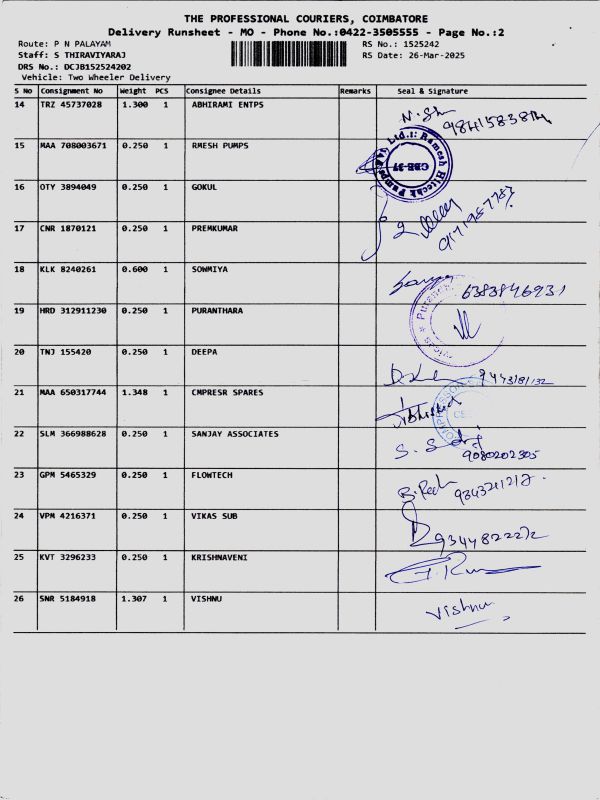 THE PROFESSIONAL COURIERS, COIMBATORE
Delivery Runsheet - MO - Phone No.:0422-3505555 - Page No.:2
Route: P N PALAYAM RS No.: 1525242
Staff: S THIRAVIYARAJ RS Date: 26-Mar-2025
DRS No.: DCJB152524202
Vehicle: Two Wheeler Delivery
S No Consignment No Weight PCS Consignee Details Remarks Seal & Signature
14 TRZ 45737028 1.300 1 ABHIRAMI ENTPS
15 MAA 708003671 0.250 1 RMESH PUMPS
CBE-37
16 OTY 3894049 0.250 1 GOKUL
17 CNR 1870121 0.250 1 PREMKUMAR
18 KLK 8240261 0.600 1 SOWMIYA
6383846931
19 HRD 312911230 0.250 1 PURANTHARA
20 TNJ 155420 0.250 1 DEEPA
21 MAA 650317744 1.348 1 CMPRESR SPARES
22 SLM 366988628 0.250 1 SANJAY ASSOCIATES
9080202305
23 GPM 5465329 0.250 1 FLOWTECH
24 VPM 4216371 0.250 1 VIKAS SUB
25 KVT 3296233 0.250 1 KRISHNAVENI
26 SNR 5184918 1.307 1 VISHNU
Vishnu